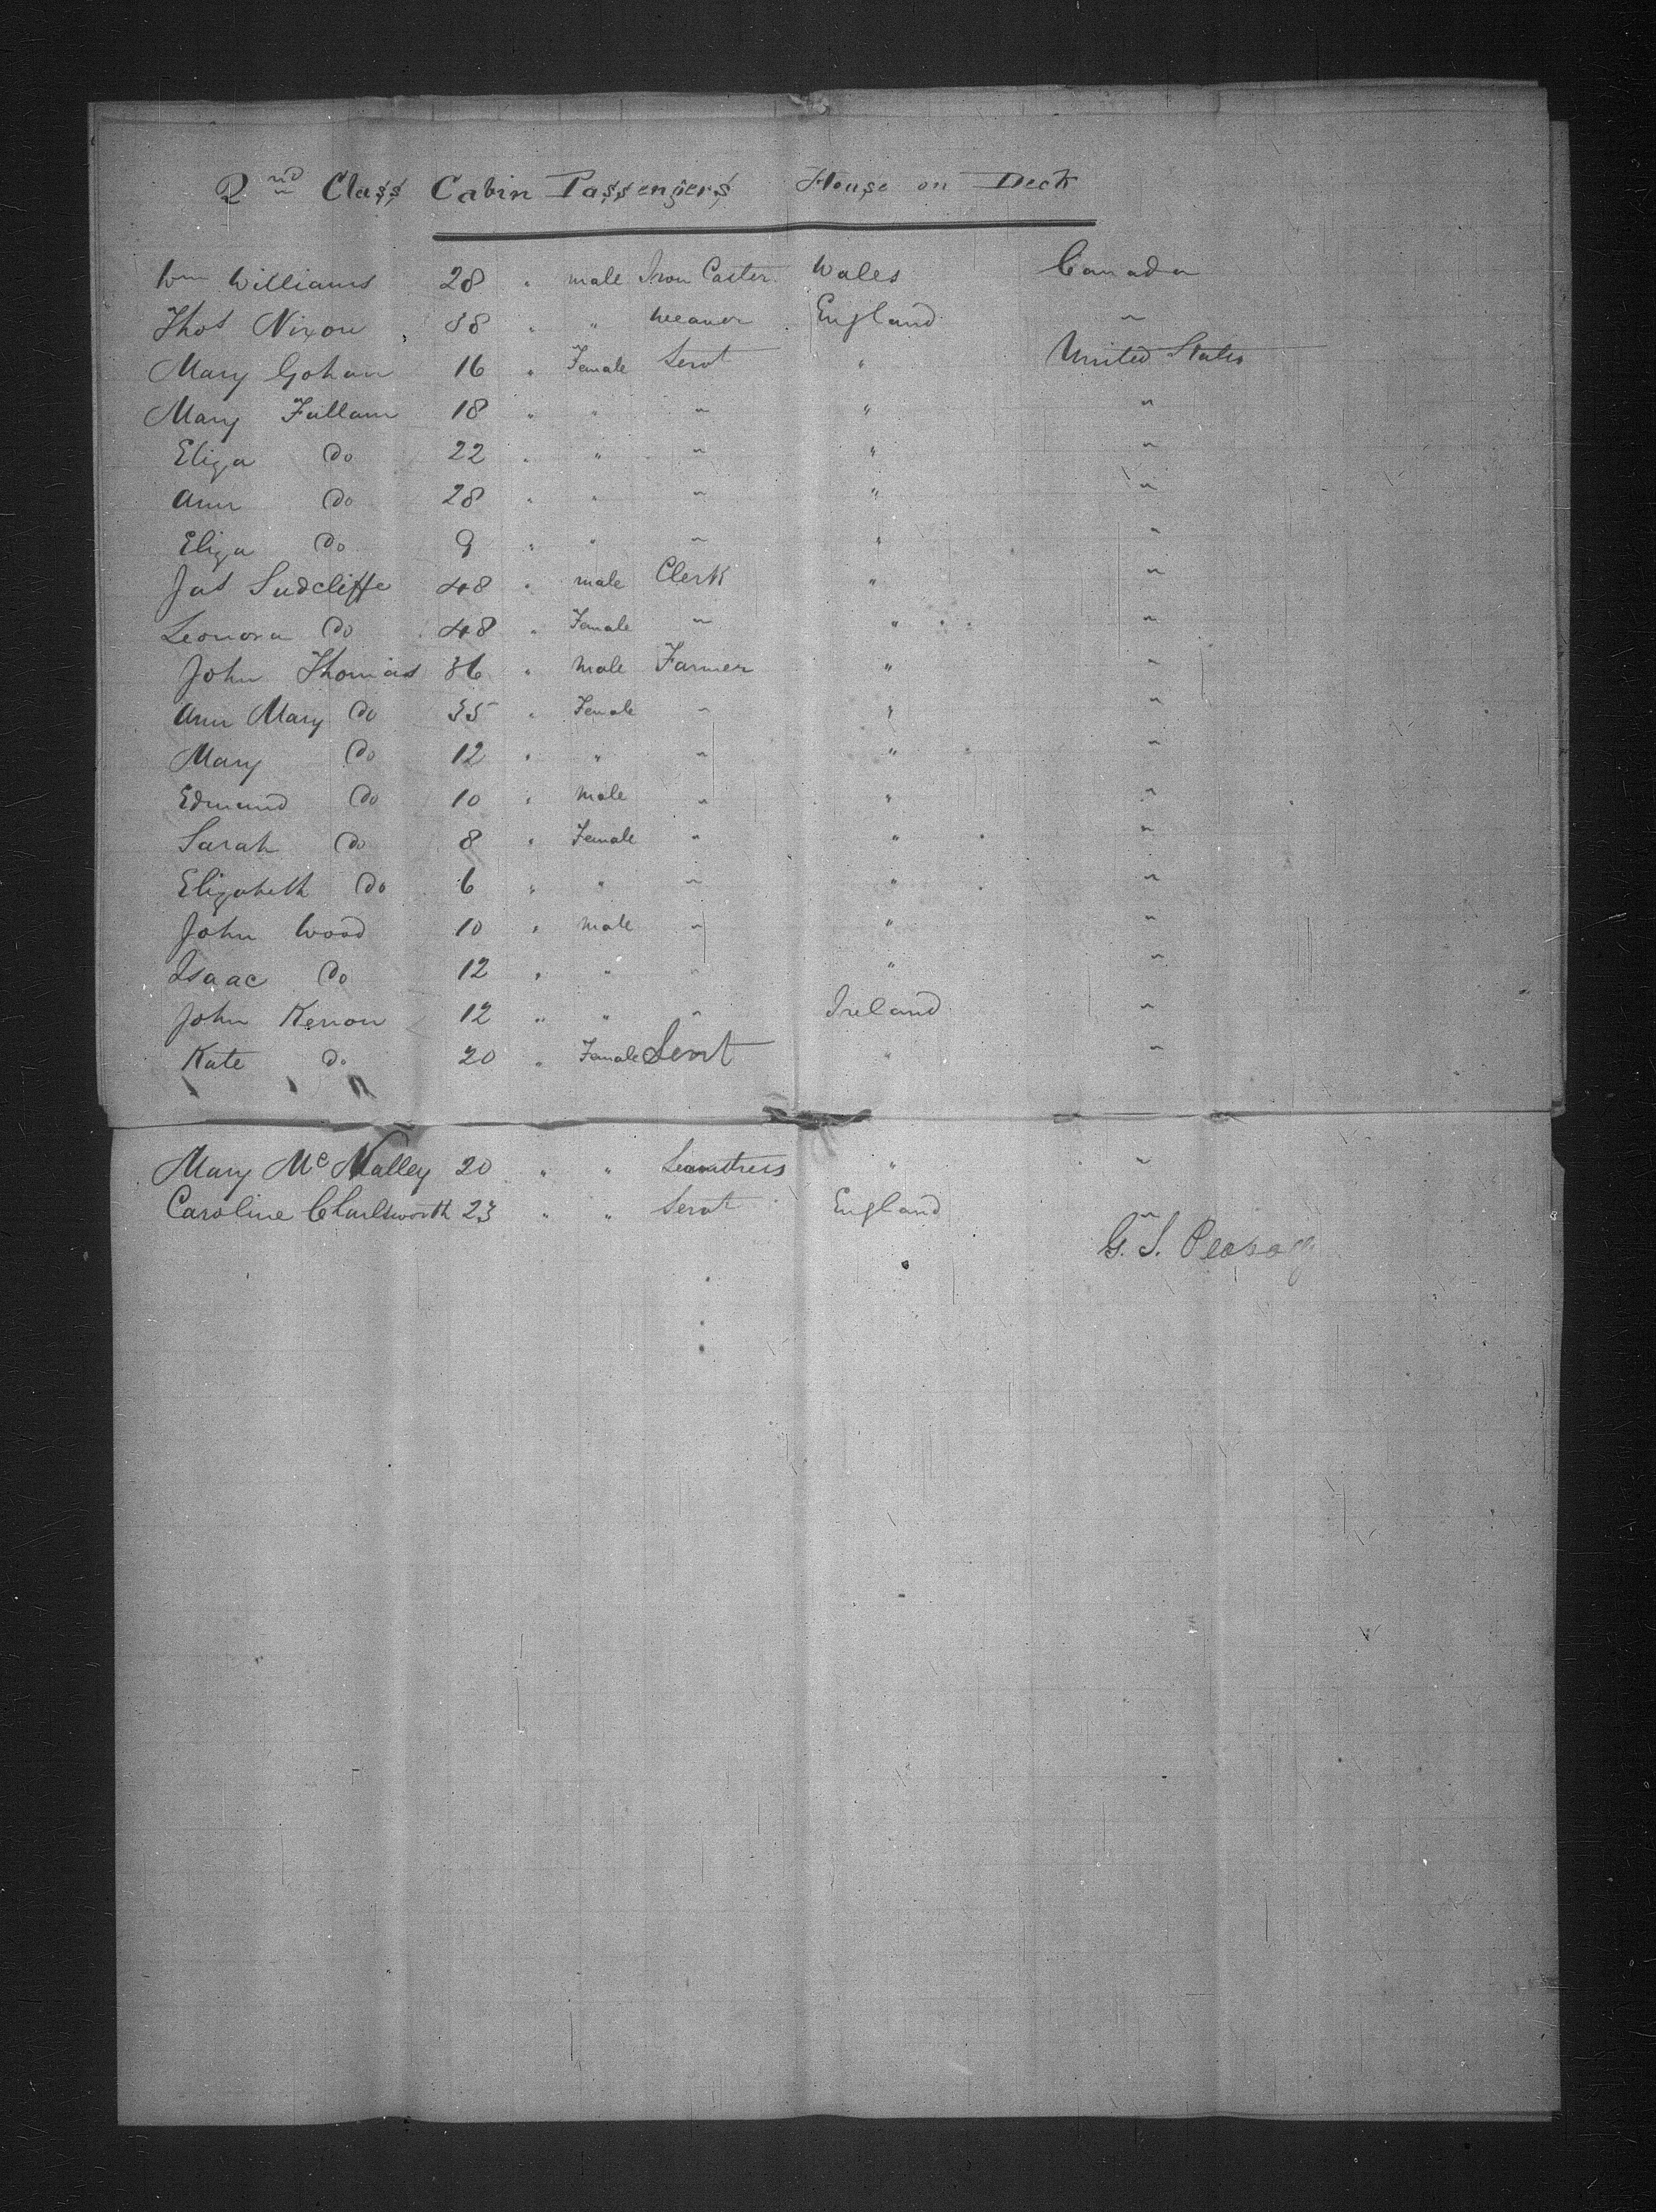 2nd Class Cabin Passengers House on Deck
Wm Williams 28 " male Iron Caster Wales Canada
Thos Nixon 38 " " Weaver England "
Mary Gohan 16 " Female Servt " United States
Mary Fallam 18 " " " " "
Eliza Do 22 " " " " "
Ann Do 28 " " " " "
Eliza Do 9 " " " " "
Jas Sudcliffe 48 " male Clerk " "
Leonora Do 48 " Female " " "
John Thomas 36 " Male Farmer " "
Ann Mary Do 35 " Female " " "
Mary Do 12 " " " " "
Edmund Do 10 " Male " " "
Sarah Do 8 " Female " " "
Elizabeth Do 6 " " " " "
John Wood 10 " Male " " "
Isaac Do 12 " " " " "
John Kenon 12 " " " Ireland "
Kate Do 20 " Female Servt " "
Mary Mc Nalley 20 " " Seamstress " "
Caroline Charlsworth 23 " " Servt England "
G. S.